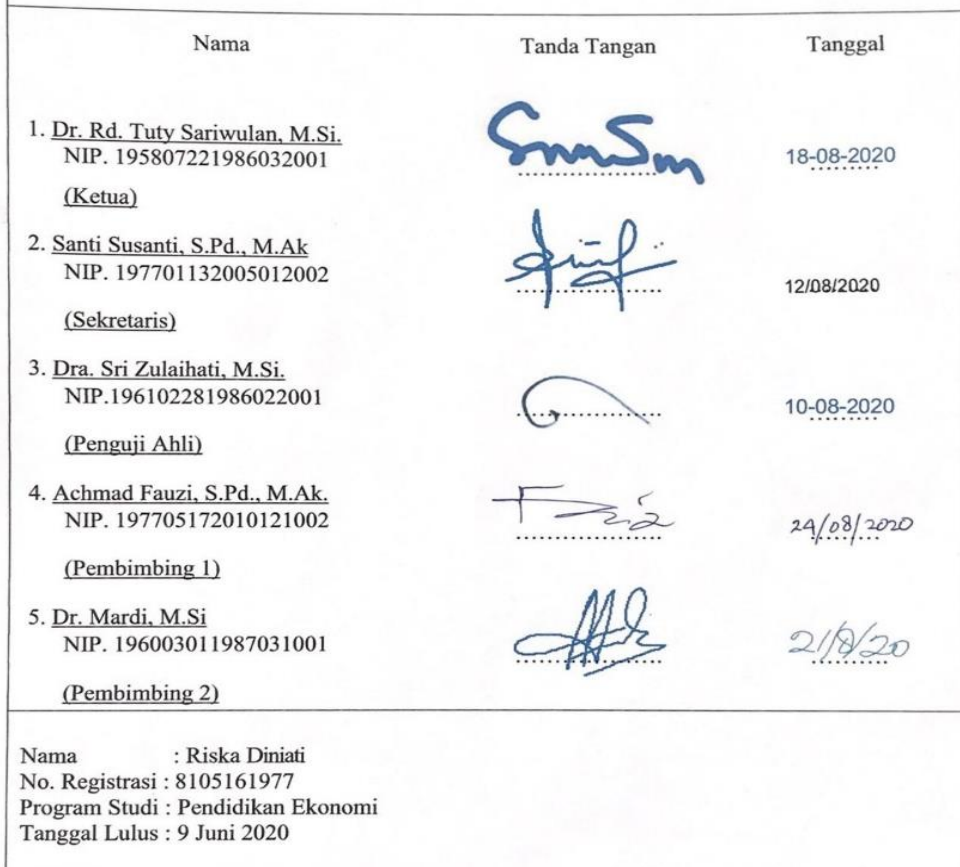 Nama Tanda Tangan Tanggal
1. Dr. Rd. Tuty Sariwulan, M.Si.
NIP. 195807221986032001 18-08-2020
(Ketua)
2. Santi Susanti, S.Pd., M.Ak
NIP. 197701132005012002 12/08/2020
(Sekretaris)
3. Dra. Sri Zulaihati, M.Si.
NIP.196102281986022001 10-08-2020
(Penguji Ahli)
4. Achmad Fauzi, S.Pd., M.Ak.
NIP. 197705172010121002 24/08/2020
(Pembimbing 1)
5. Dr. Mardi, M.Si
NIP. 196003011987031001 21/8/20
(Pembimbing 2)
Nama : Riska Diniati
No. Registrasi : 8105161977
Program Studi : Pendidikan Ekonomi
Tanggal Lulus : 9 Juni 2020